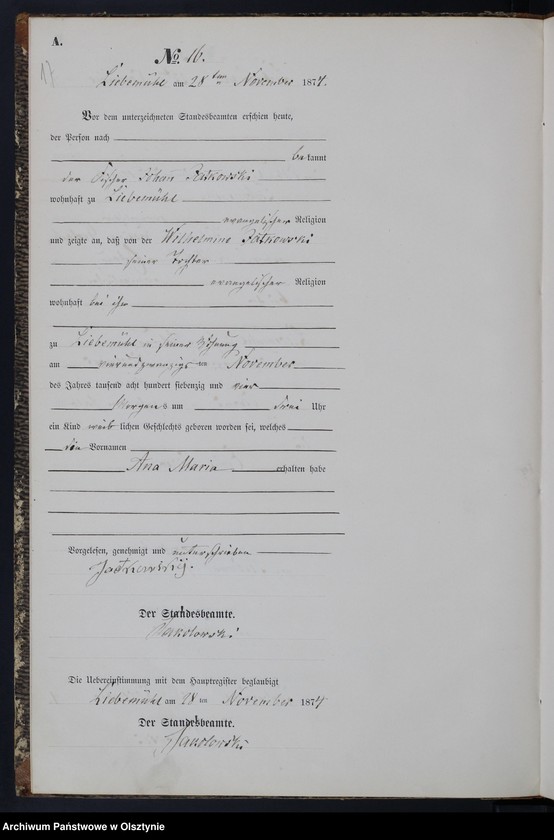 A.
17
No. 16.
Liebemühl am 28ten November 1874.
Vor dem unterzeichneten Standesbeamten erschien heute,
der Person nach
bekannt
der Johan
wohnhaft zu Liebemühl
evangelischer Religion
und zeigte an, daß von der Wilhelmine
seiner Tochter
evangelischer Religion
wohnhaft bei ihm
zu Liebemühl in seiner Wohnung
am vierundzwanzigsten November
des Jahres tausend acht hundert siebenzig und vier
Morgens um drei Uhr
ein Kind weiblichen Geschlechts geboren worden sei, welches
die Vornamen
Ana Maria erhalten habe
Vorgelesen, genehmigt und unterschrieben
Der Standesbeamte.
Die Uebereinstimmung mit dem Hauptregister beglaubigt
Liebemühl am 28ten November 1874
Der Standesbeamte.
Archiwum Państwowe w Olsztynie